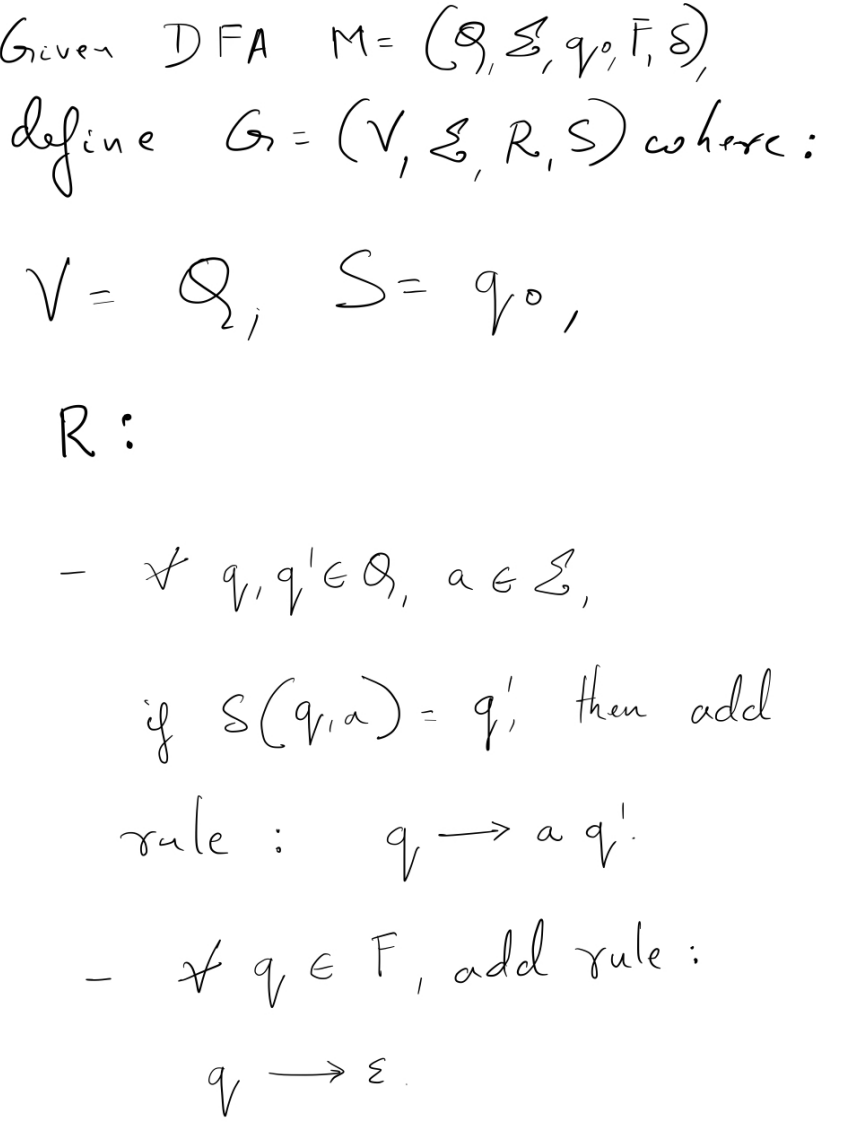 Given DFA M = (Q, Σ, q₀, F, δ),
define G = (V, Σ, R, S) where:
V = Q, S = q₀,
R:
- ∀ q, q' ∈ Q, a ∈ Σ,
if δ(q, a) = q', then add
rule : q → a q'.
- ∀ q ∈ F, add rule :
q → ε.